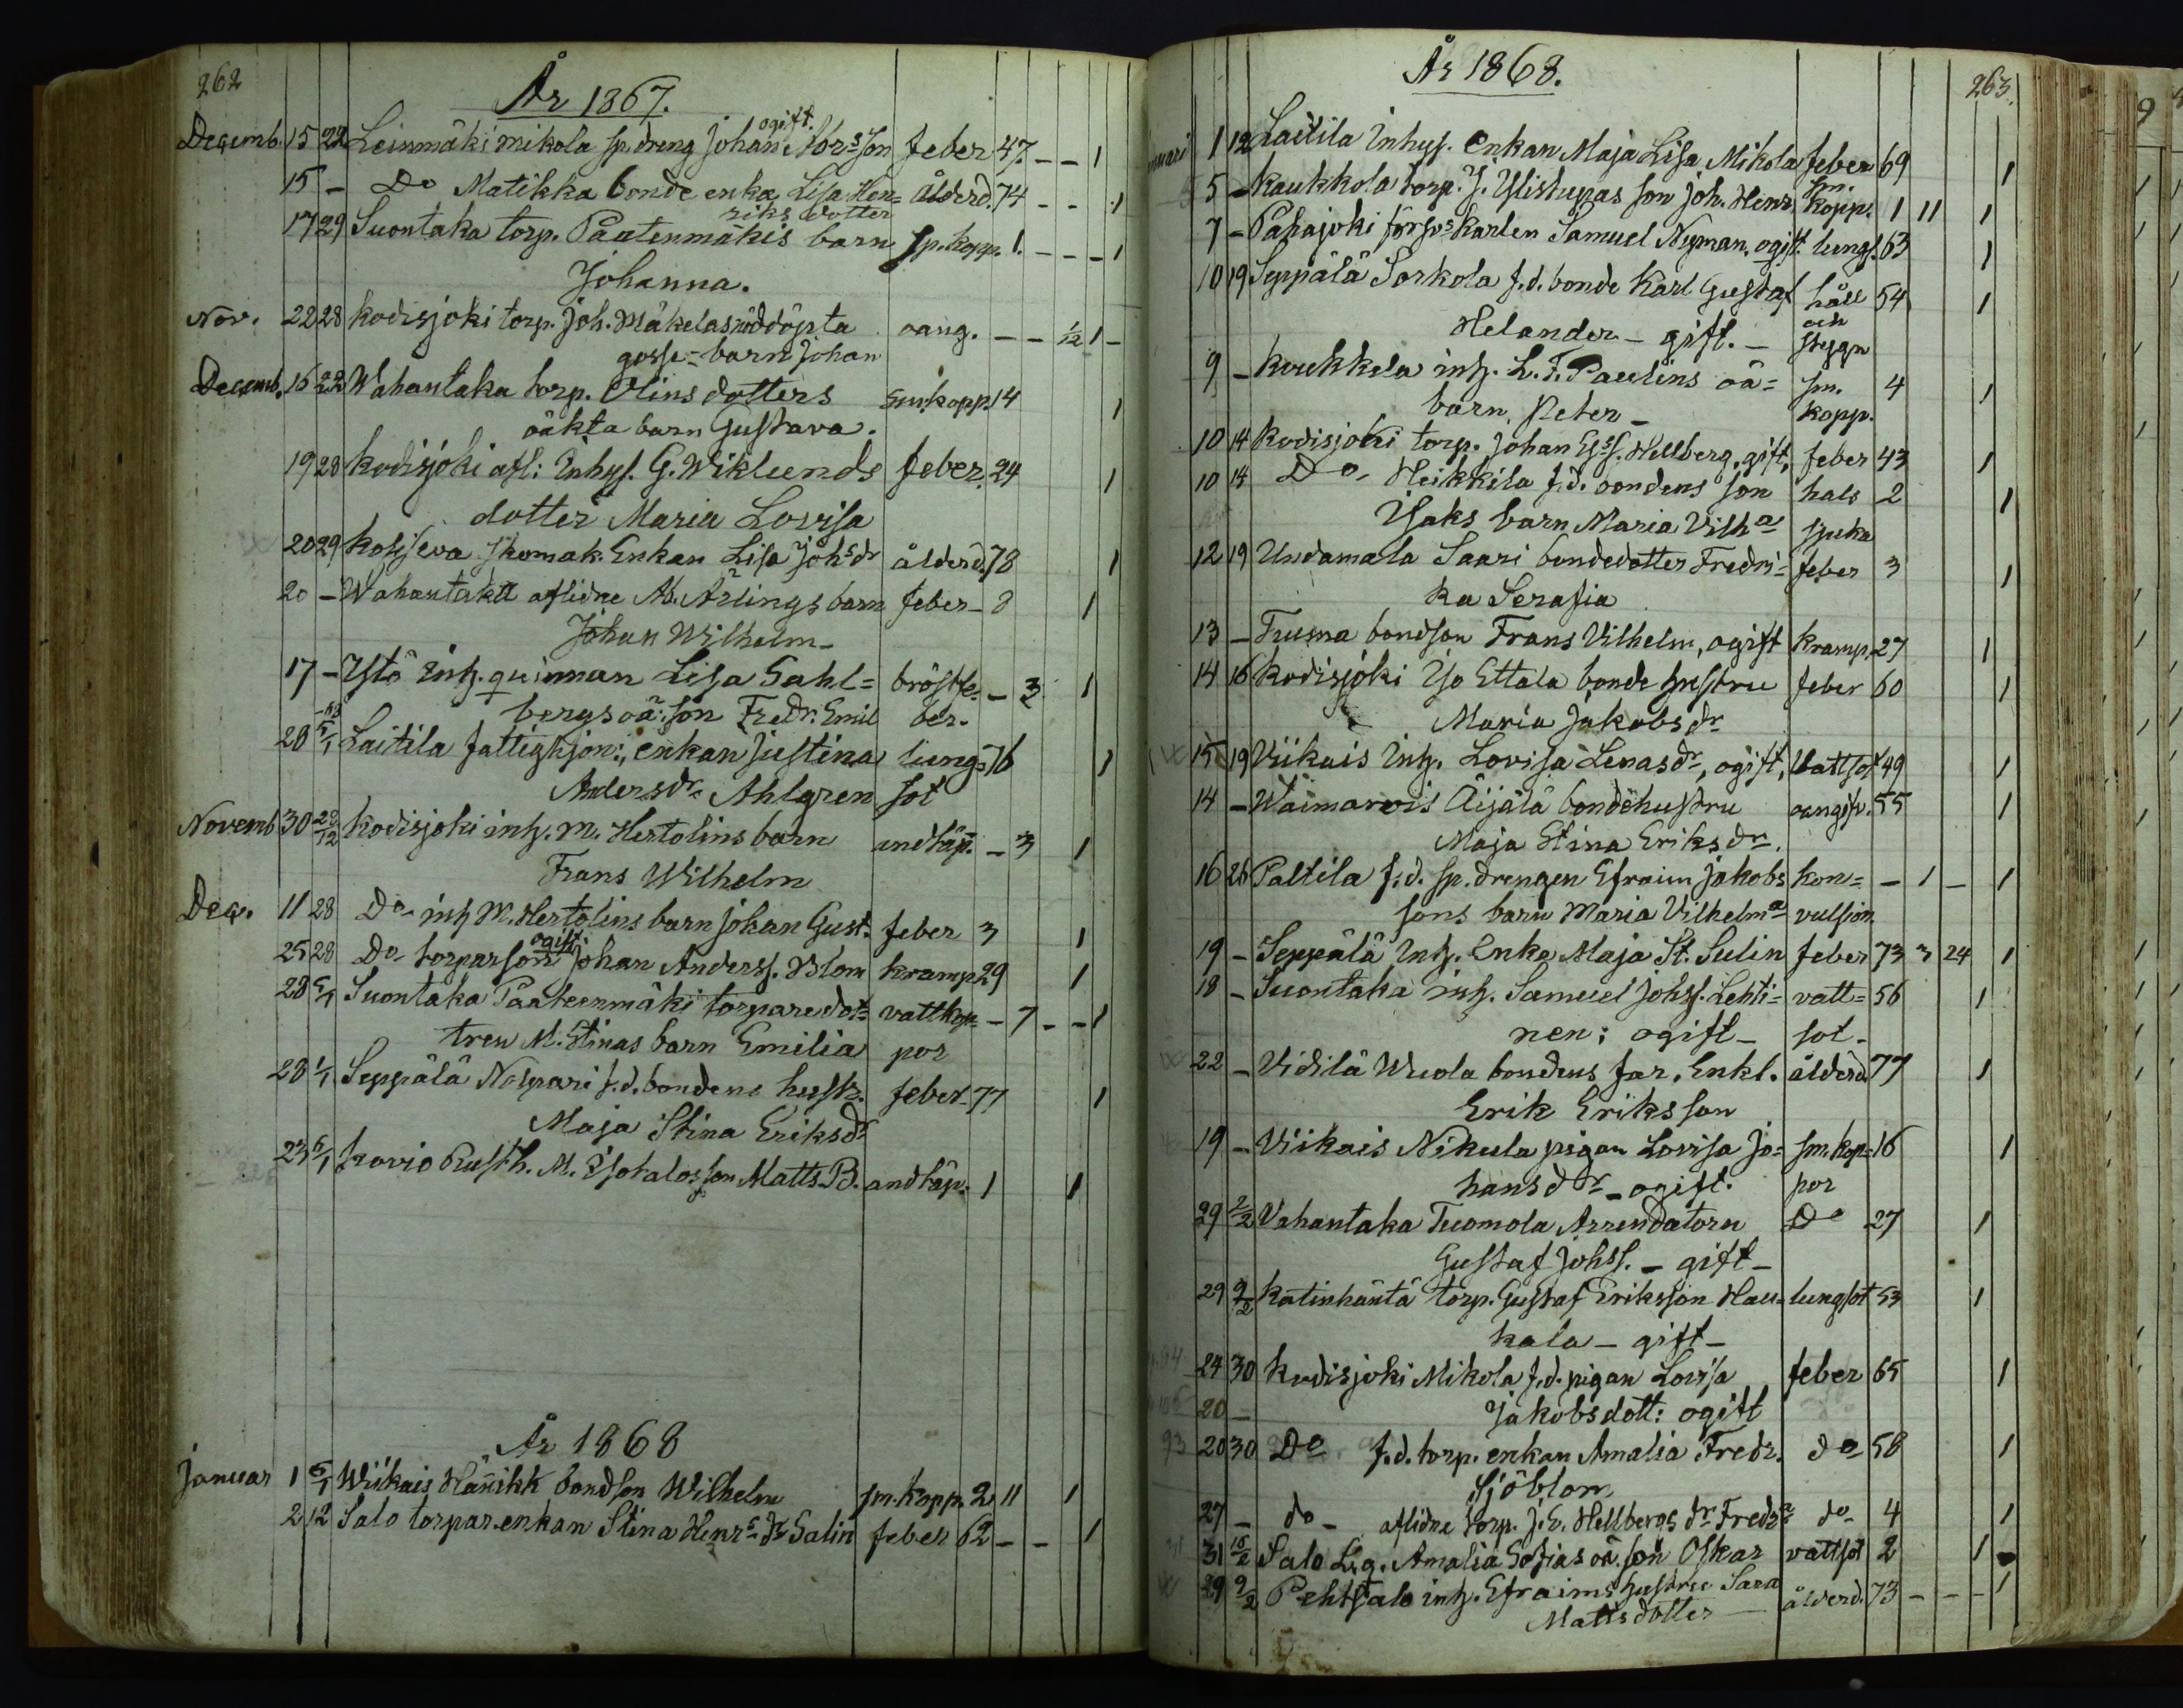 262
År 1867.
ogift.
Decemb. 15 22 Leinmäki Mikola sp. dreng Johan Abr:s Son feber 47 - - 1
15 - Do Matikka bonde enka Lisa Hen= ålderd. 74 - - 1
riks dotter
17 29 Suontaka torp. Paatenmäkis barn sp. kopp. 1. - - - 1
Johanna.
Nov. 22 28 Kodisjoki torp. Joh. Mäkelas nöddöpta oang. - - 1/12 1 -
gosse-barn Johan
Decemb. 16 22 Wahantaka torp. Olins dotters smkopp. 14 1
oäkta barn Gustava.
19 28 Kodisjoki afl: Inhys. G. Wiklunds feber. 24 1
dotter Maria Lovisa
20 29 Enkan Lisa Johsdr ålderd. 78 1
20 - Wahantaka aflidne Ab. Ärlings barn feber - 8 1
Johan Wilhelm -
17 - Ystö Inh. quinnan Lisa Sahl= bröstfe- - 3 1
bergs oä: son Fredr. Emil ber.
-68
28 5/1 Laitila fattighjon:, enkan Justina lung= 76 1
Andersdr Ahlgren sot
Novemb 30 28/12 Kodisjoki inh. M. Hertolins barn andtäp. - 3 1
Frans Wilhelm
Dec. 11 28 Do inh M. Hertolins barn Johan Gust. feber 3 1
ogift
25 28 Do torparson Johan Anderss. Blom kramp 29 1
28 5/1 Suontaka Paateenmäki torparedot= vattkop- - 7 - - 1
tren M. Stinas barn Emilia por
28 1/1 Seppälä Nolpari f.d. bondens hustr. feber - 77 1
Maja Stina Eriksdr
23 6/1 Kovio Rusth. M. Isotalos son Matts B. andtäp. 1 1
År 1868
Januar 1 6/1 Wiikais Hännikk bondson Wilhelm sm. kopp. 2 11 1
2 12 Salo torpar-enkan Stina Henrs dr Salin feber 62 - - 1
År 1868.
263.
1 12 Laitila Inhys. Enkan Maja Lisa Mikola feber 69 1
5 - Kaukkola torp. J. Ylistupas son Joh. Henr. sm. kopp. 1 11 1
7 - Pahajoki försvs karlen Samuel Nyman, ogift. lungs. 63 1
10 19 Seppälä Sorkola f.d. bonde Karl Gustaf håll 54 1
och
Helander - gift. - stygn
9 - Kaukkola inh. L. F. Paulins oä= sm. 4 1
barn Peter - kopp.
10 14 Kodisjoki torp. Johan Hellberg, gift, feber 43 1
10 14 Do - Heikkilä f.d. bondens son hals 2 1
Isaks barn Maria Vilha sjuka
12 19 Undamala Saari bondedotter Fredri= feber 3 1
ka Serafia
13 - Truuna bondson Frans Vilhelm, ogift kramp. 27 1
14 16 Kodisjoki Iso Ettala bonde hustru feber 60 1
Maria Jakobsdr
15 19 Viikais Inh. Lovisa Lenasdr, ogift, Vattsot 49 1
14 - Waimarvis Äijälä bondehustru oangifv. 55 1
Maja Stina Eriksdr.
16 26 Paltila f.d. sp. drengen Efraim Jakobs kon= - 1 - 1
sons barn Maria Vilhelma vulsion.
19 - Seppälä Inh. Enka Maja St. Sulin feber 73 3 24 1
18 - Suontaka inh. Samuel Johss. Lehti= vatt= 56 1
nen; ogift - sot -
22 - Vidilä Wuola bondens far, Enkl. ålderd. 77 1
Erik Eriksson
19 - Viikais Nikula pigan Lovisa Jo= sm. kop= 16 1
hansddr - ogift. por
29 2/2 Vahantaka Tuomola Arrendatorn Do 27 1
Gustaf Johss. - gift -
29 9/2 Katinhäntä torp. Gustaf Eriksson Hau= lungsot 53 1
kala - gift -
24 30 Kodisjoki Mikola f.d. pigan Lovisa feber 65 1
20 - Jakobsdott: ogift
20 30 Do f.d. torp. enkan Amalia Fredr. do 58 1
Sjöblom,
27 - do - aflidne torp. J. E. Hellbergs dr Fredra do 4 1
31 16/2 Salo L.g. Amalia Sofias oä. son Oskar vattsot 2 1
29 9/2 Pehtsalo inh. Efraims hustru Sara ålderd. 73 - - - 1
Mattsdotter -